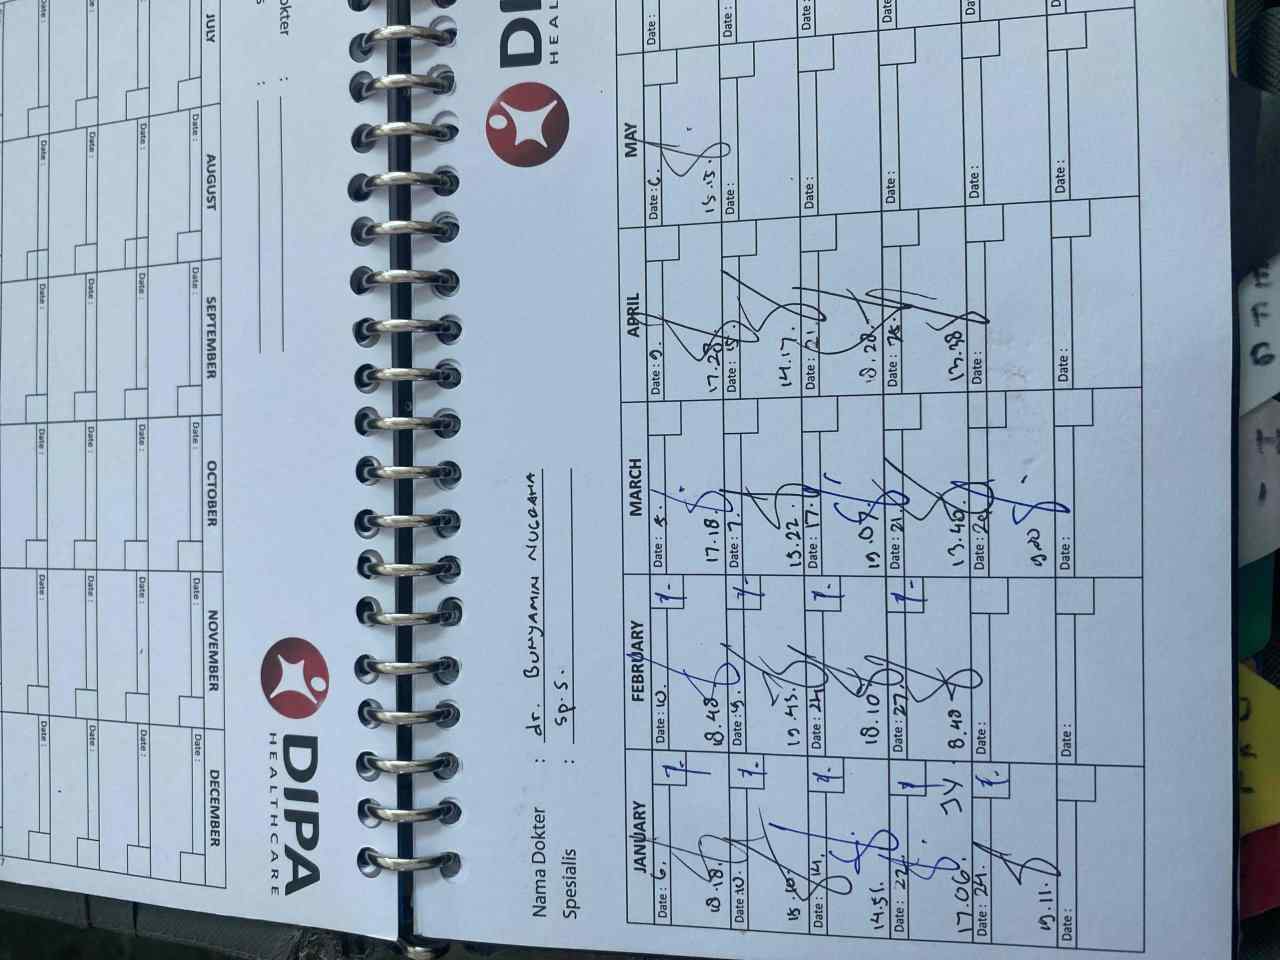 DIPA
HEALTHCARE
Nama Dokter : dr. BUNYAMIN NUGRAHA
Spesialis : Sp. S.
JANUARY FEBRUARY MARCH APRIL MAY
Date: 6. Date: 10. Date: 5. Date: 9. Date: 6.
18.18. 18.48 17.18. 17.28 15.15.
Date: 10. Date: Date: 7. Date: 15. Date:
15.10. 19.45. 15.22. 14.17.
Date: 14. Date: 24 Date: 17. Date: 21. Date:
14.51. 18.10 19.09. 18.28.
Date: 22 Date: 27. Date: 21. Date: Date:
17.06. 8.48 13.40. 13.38
Date: 24. Date: Date: Date: Date:
19.11.
Date: Date: Date: Date: Date:
DIPA
HEALTHCARE
JULY AUGUST SEPTEMBER OCTOBER NOVEMBER DECEMBER
Date: Date: Date: Date: Date: Date:
Date: Date: Date: Date: Date: Date:
Date: Date: Date: Date: Date: Date:
Date: Date: Date: Date: Date: Date: